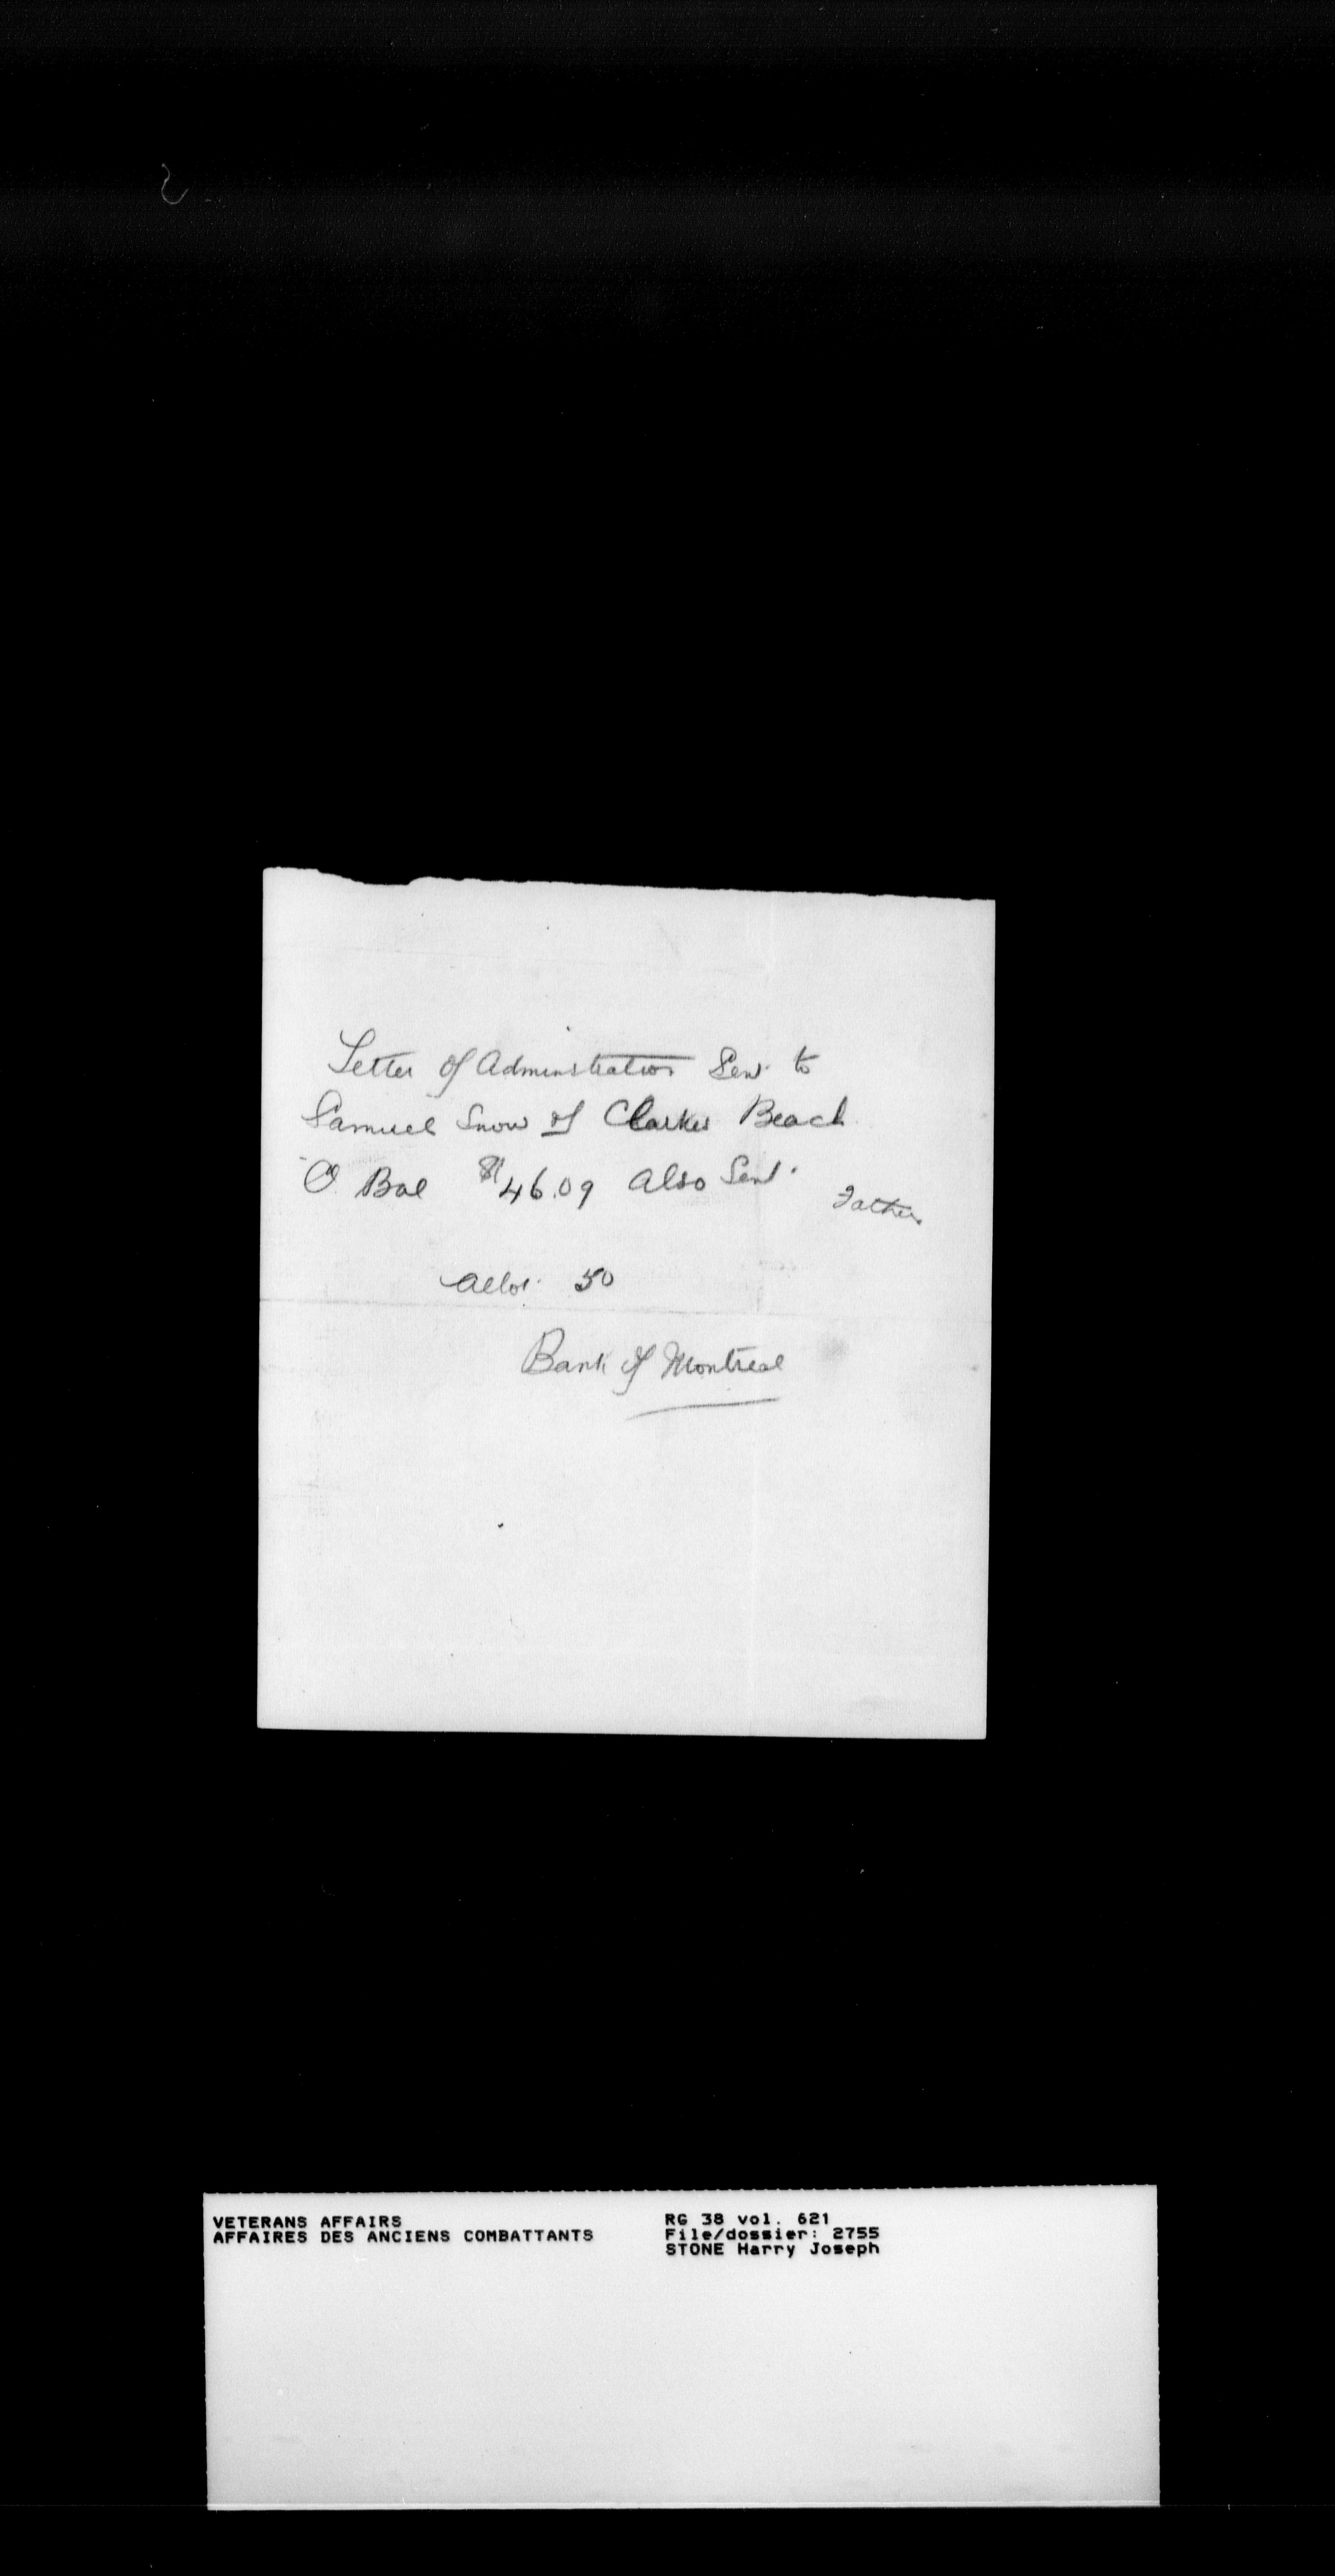 Letter of Adminstration Sent to
Samuel Snow of Clarkes Beach
Bal $46.09 Also Sent.
Father
Allot. 50
Bank of Montreal
VETERANS AFFAIRS
AFFAIRES DES ANCIENS COMBATTANTS
RG 38 vol. 621
File/dossier: 2755
STONE Harry Joseph